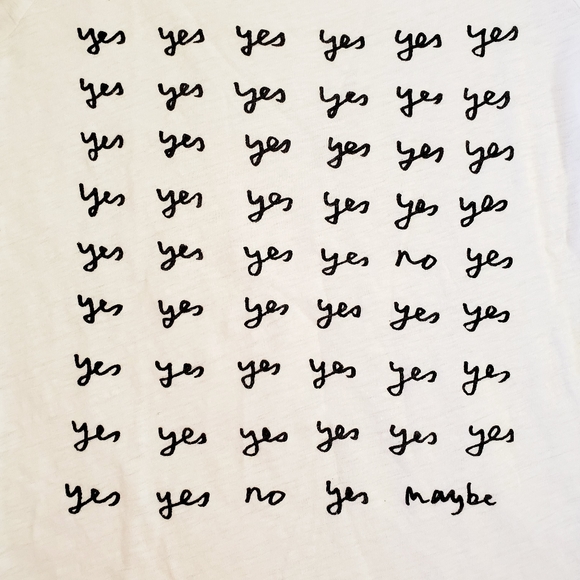 yes yes yes yes yes yes
yes yes yes yes yes yes
yes yes yes yes yes yes
yes yes yes yes yes yes
yes yes yes yes no yes
yes yes yes yes yes yes
yes yes yes yes yes yes
yes yes yes yes yes yes
yes yes no yes maybe